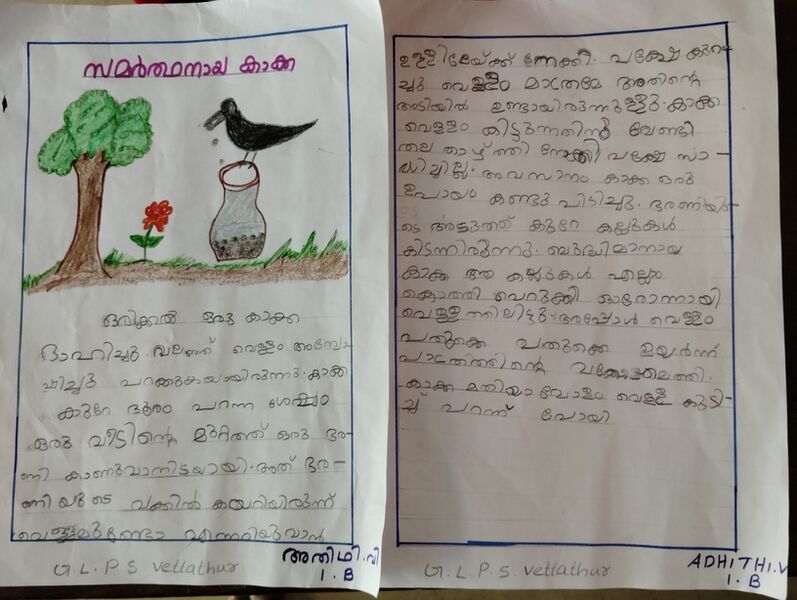 സമർത്ഥനായ കാക്ക
ഒരിക്കൽ ഒരു കാക്ക
ദാഹിച്ചു വലഞ്ഞ് വെള്ളം അന്വേ-
ഷിച്ചു പറക്കുകയായിരുന്നു. കാക്ക
കുറേ ദൂരം പറന്ന ശേഷം
ഒരു വീടിന്റെ മുറ്റത്ത് ഒരു ഭര-
ണി കാണുവാനിടയായി. അത് ഭര-
ണിയുടെ വക്കിൽ കയറിയിരുന്ന്
വെള്ളമുണ്ടോ എന്നറിയുവാൻ
G.L.P.S Vettathur
അതിഥി.വി
1.B
ഉള്ളിലേയ്ക്ക് നോക്കി. പക്ഷേ കുറ-
ച്ചു വെള്ളം മാത്രമേ അതിന്റെ
അടിയിൽ ഉണ്ടായിരുന്നുള്ളു. കാക്ക
വെള്ളം കിട്ടുന്നതിനു വേണ്ടി
തല താഴ്ത്തി നോക്കി പക്ഷേ സാ-
ധിച്ചില്ല. അവസാനം കാക്ക ഒരു
ഉപായം കണ്ടു പിടിച്ചു. ഭരണിയു-
ടെ അടുത്ത് കുറേ കല്ലുകൾ
കിടന്നിരുന്നു. ബുദ്ധിമാനായ
കാക്ക ആ കല്ലുകൾ എല്ലാം
കൊത്തി പെറുക്കി ഓരോന്നായി
വെള്ളത്തിലിട്ടു. അപ്പോൾ വെള്ളം
പതുക്കെ പതുക്കെ ഉയർന്ന്
പാത്രത്തിന്റെ വക്കോളമെത്തി.
കാക്ക മതിയാവോളം വെള്ളം കുടി-
ച്ച് പറന്ന് പോയി.
G.L.P.S. Vettathur
ADHITHI.V
1.B